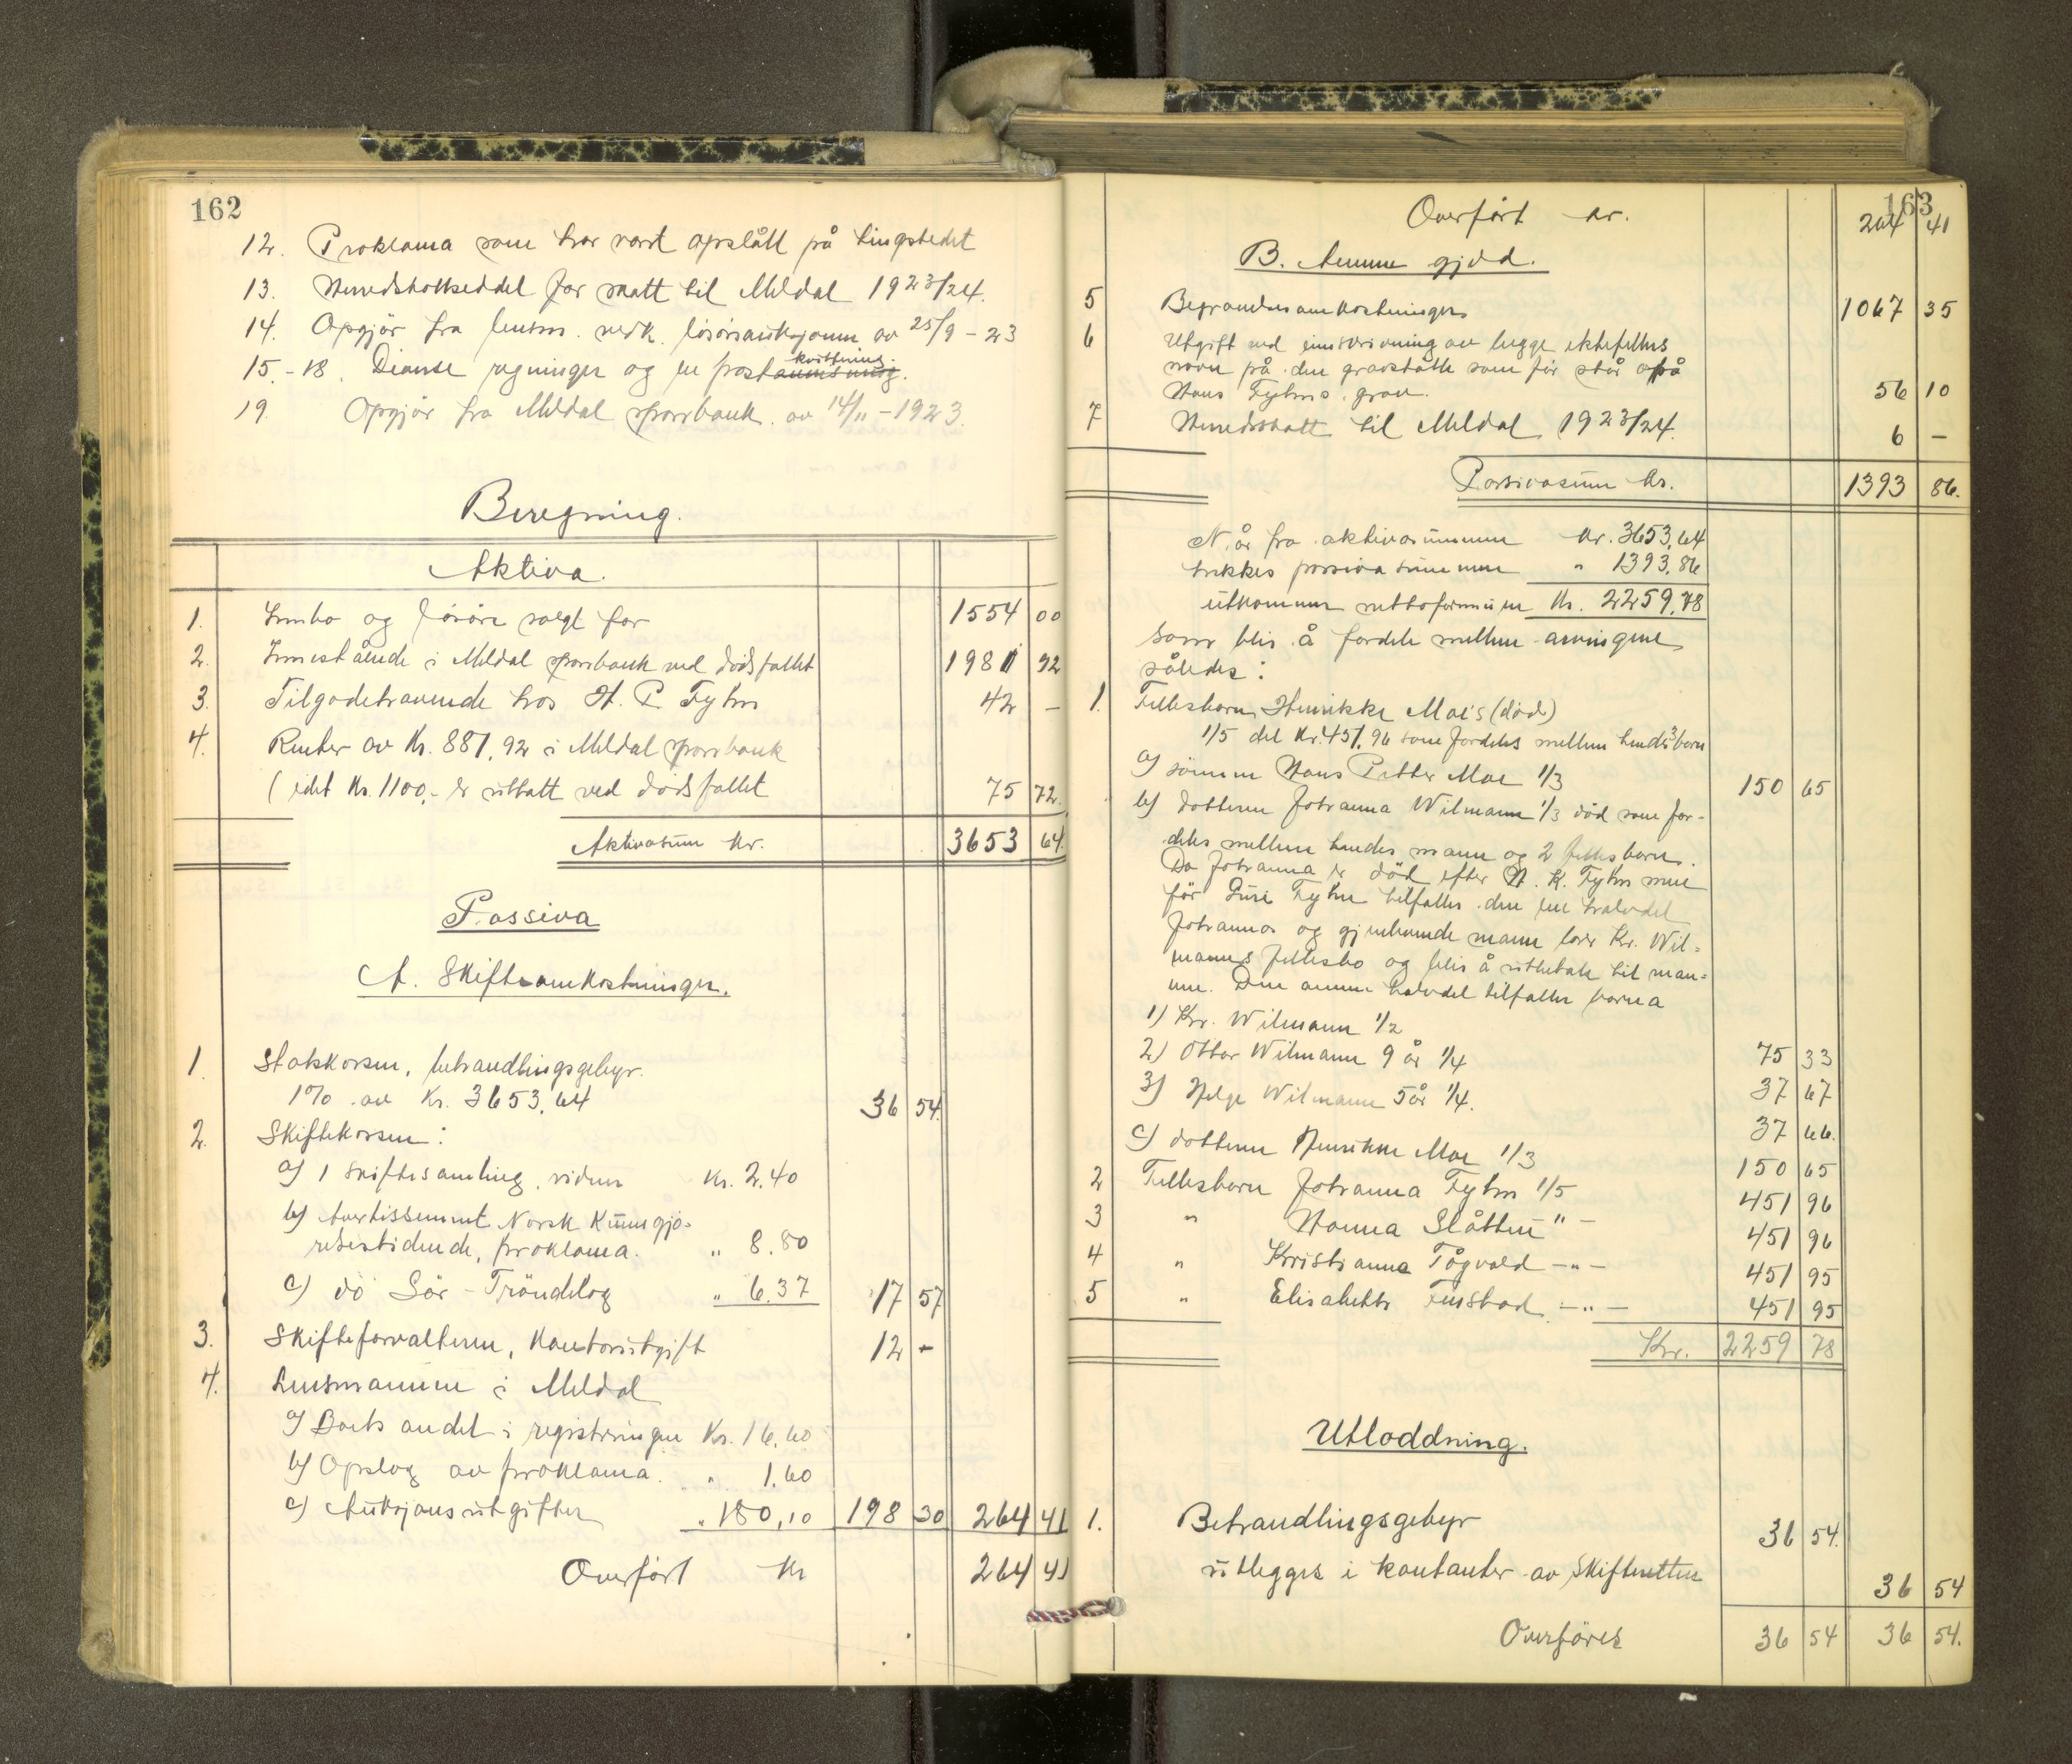 162
12. Proklama som har vært opslått på tingstedet
13. Herredskattseddel for skatt til Meldal 1923/24.
14. Opgjör fra lensm. vedk. lösöreauksjonen av 25/9 - 23
kvittering.
15.-18. Diverse regninger og en post
19. Opgjör fra Meldal sparebank av 14/11 - 1923.
Beregning.
Aktiva.
1. Innbo og lösöre solgt for 1554 00
2. Innestående i Meldal sparebank ved dödsfallet 1981 92
3. Tilgodehavende hos H. P. Fyhn 42 -
4. Renter av Kr. 881,92 i Meldal sparebank
(idet Kr. 1100,- er uttatt ved dödsfallet 75 72.
Aktivasum Kr. 3653 64.
Passiva
A. Skifteomkostninger.
1. Statskassen, behandlingsgebyr.
1% av Kr. 3653,64 36 54.
2. Skiftekassen:
a) 1 skiftesamling, Kr. 2,40
b) Avertissement Norsk Kunngjö-
relsestidende, proklama. " 8.80
c) do Sör-Tröndelag " 6.37 17 57
3. Skifteforvalteren, Kontorutgift 12 -
4. Lensmannen i Meldal
a) Boets andel i registreringen Kr. 16,60
b) Opslag av proklama. " 1,60
c) Auksjonsutgifter " 180,10 198 30 264 41
Overfört Kr 264 41
163
Overfört kr. 264 41
B. Annen gjeld.
5 Begravelsesomkostninger 1067 35
6 Utgift ved innskrivning av begge ektefellers
navn på den gravstötte som för står på
Hans Fyhns grav. 56 10
7 Herredsskatt til Meldal 1923/24. 6 -
Passivasum kr. 1393 86.
Når fra aktivasummen kr. 3653,64
trekkes passivasummen " 1393,86
utkommer nettoformuen Kr. 2259,78
som blir å fordele mellem arvingene
således:
1. Fellesbarn Henrikke Moe's (död)
1/5 del Kr. 451,96 som fordeles mellem hendes 3 barn
a) sönnen Hans Petter Moe 1/3 150 65
b) datteren Johanna Wilmann 1/3 död som for-
deles mellem hendes mann og 2 fellesbarn.
Da Johanna er död efter H. K. Fyhn men
för Guri Fyhn tilfaller den ene halvdel
Johannas og gjenlevende mann Kr. Wil-
manns fellesbo og blir å utbetale til man-
nen. Den annen halvdel tilfaller barna
1) Kr. Wilmann 1/2 75 33
2) Ottar Wilmann 9 år 1/4 37 67
3) Helge Wilmann 5 år 1/4. 37 66.
c) datteren Henrikke Moe 1/3 150 65
2 Fellesbarn Johanna Fyhn 1/5 451 96
3 " Hanna Slåtten " - 451 96
4 " Kristianna Tågvold -"- 451 95
5 " Elisabeth Finstad -"- 451 95
Kr. 2259 78
Utloddning.
1. Behandlingsgebyr 36 54.
utlegges i kontanter av Skifteretten 36 54
Overföres 36 54 36 54.